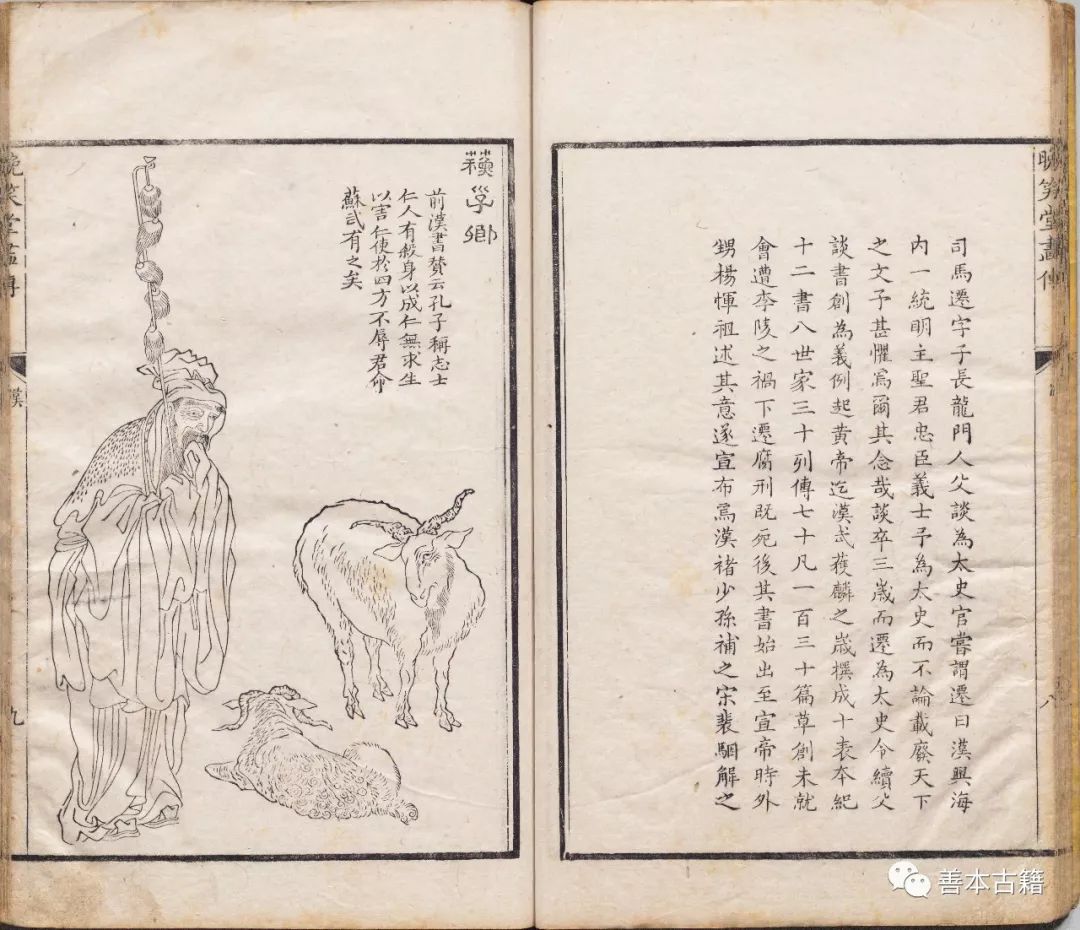 晚笑堂畫傳
八
司馬遷字子長龍門人父談為太史官嘗謂遷曰漢興海
內一統明主聖君忠臣義士予為太史而不論載廢天下
之文予甚懼焉爾其念哉談卒三歲而遷為太史令續父
談書創為義例起黃帝迄漢武獲麟之歲撰成十表本紀
十二書八世家三十列傳七十凡一百三十篇草創未就
會遭李陵之禍下遷腐刑既死後其書始出至宣帝時外
甥楊惲祖述其意遂宣布焉漢褚少孫補之宋裴駰解之
蘇子卿
前漢書贊云孔子稱志士
仁人有殺身以成仁無求生
以害仁使於四方不辱君命
蘇武有之矣
晚笑堂畫傳
漢
九
善本古籍